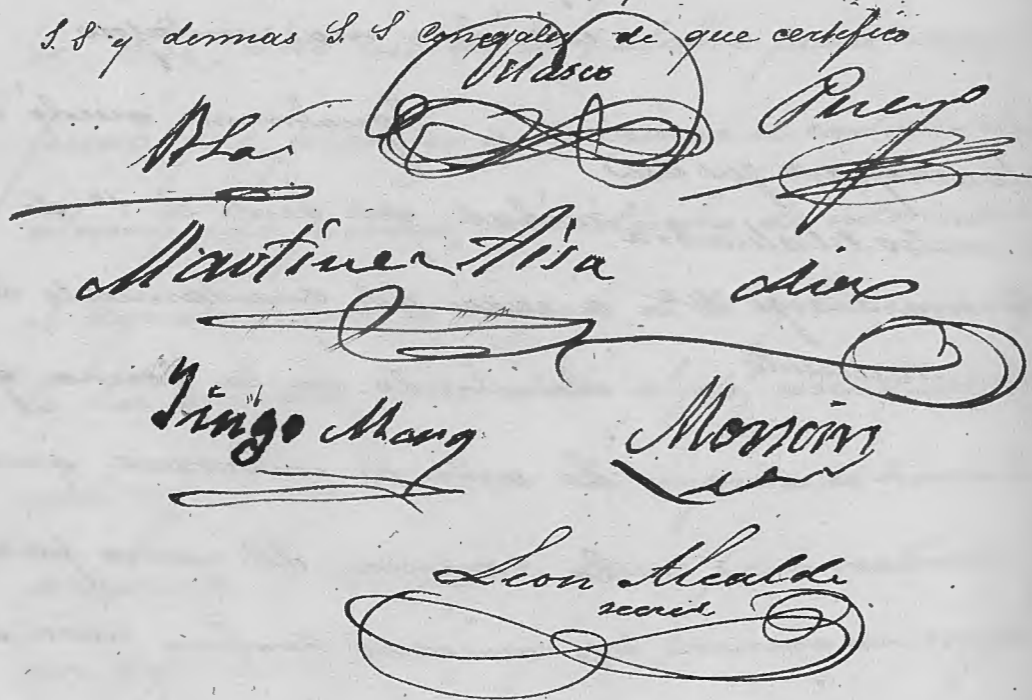 S. S y demmas S. S Concejales de que certifico
Velasco
Blas
Pueyo
Martinez Aisa
Yingo Manz
Monzon
Leon Alcalde
secret